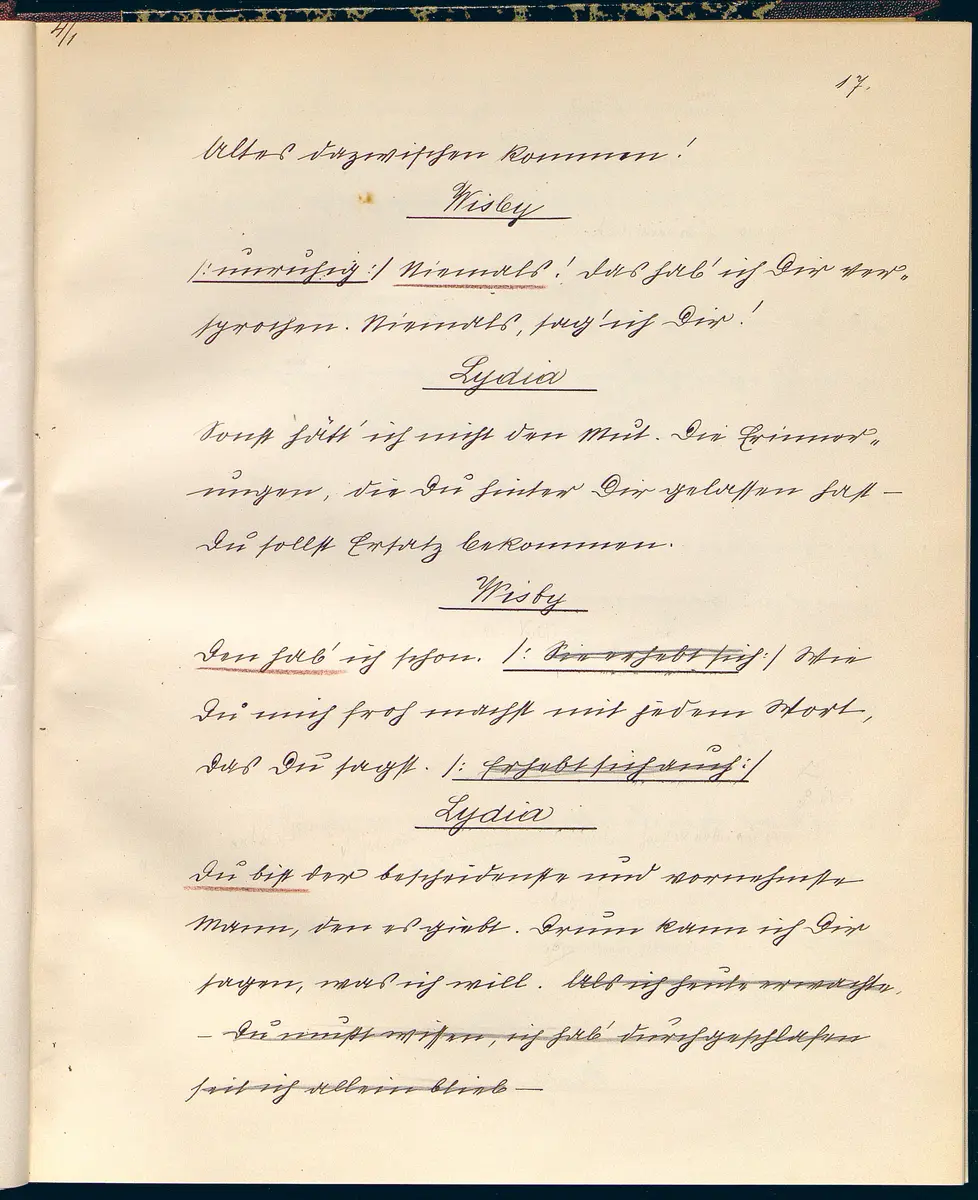 4/1
17.
Altes dazwischen kommen!
Wisby
/: unruhig :/ Niemals! Das hab' ich Dir ver-
sprochen. Niemals, sag' ich Dir!
Lydia
Sonst hätt' ich nicht den Mut. Die Erinner-
ungen, die Du hinter Dir gelassen hast –
Du sollst Ersatz bekommen.
Wisby
Den hab' ich schon. /: Sie erhebt sich :/ Wie
Du mich froh machst mit jedem Wort,
das Du sagst. /: Erhebt sich auch :/
Lydia
Du bist der bescheidenste und vornehmste
Mann, den es giebt. Drum kann ich Dir
sagen, was ich will. Als ich heute erwachte,
– Du mußt wissen, ich hab' durchgeschlafen
seit ich allein blieb –